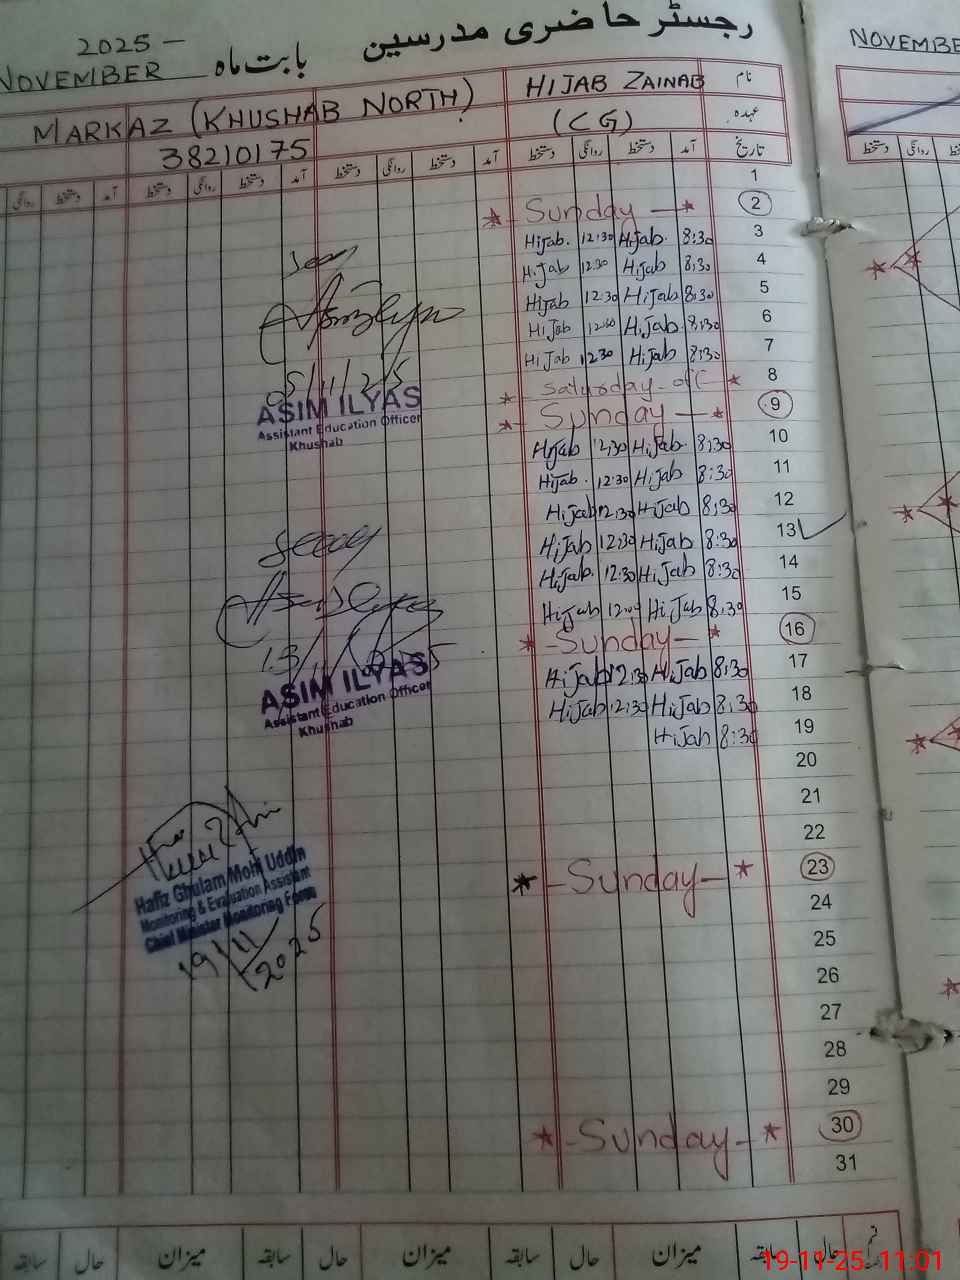 رجسٹر حاضری مدرسین بابت ماہ
2025 -
NOVEMBER
NOVEMBE
نام HIJAB ZAINAB
MARKAZ (KHUSHAB NORTH)
عہدہ (CG)
38210175
تاریخ آمد دستخط روانگی دستخط آمد دستخط روانگی دستخط آمد دستخط روانگی دستخط
1
2 Sunday
3 8:30 Hijab 12:30 Hijab.
4 8:30 Hijab 12:30 Hijab
5 8:30 Hijab 12:30 Hijab
6 8:30 Hijab Hijab
7 8:30 Hijab 12:30 Hijab
8 Saturday off
9 Sunday
10 8:30 Hijab 12:30 Hijab
11 8:30 Hijab 12:30 Hijab.
12 8:30 Hijab 12:30 Hijab
13 8:30 Hijab 12:30 Hijab
14 8:30 Hijab 12:30 Hijab.
15 8:30 Hijab 12:00 Hijab
16 Sunday
17 8:30 Hijab 12:30 Hijab
18 8:30 Hijab 12:30 Hijab
19 8:30 Hijab
20
21
22
23 Sunday
24
25
26
27
28
29
30 Sunday
31
05/11/25
ASIM ILYAS
Assistant Education Officer
Khushab
13/11/
ASIM ILYAS
Assistant Education Officer
Khushab
Hafiz Ghulam Mohi Uddin
Monitoring & Evaluation Assistant
Chief Minister Monitoring Force
19/11/2025
حال سابقہ میزان حال سابقہ میزان حال سابقہ میزان حال سابقہ
19-11-25. 11:01